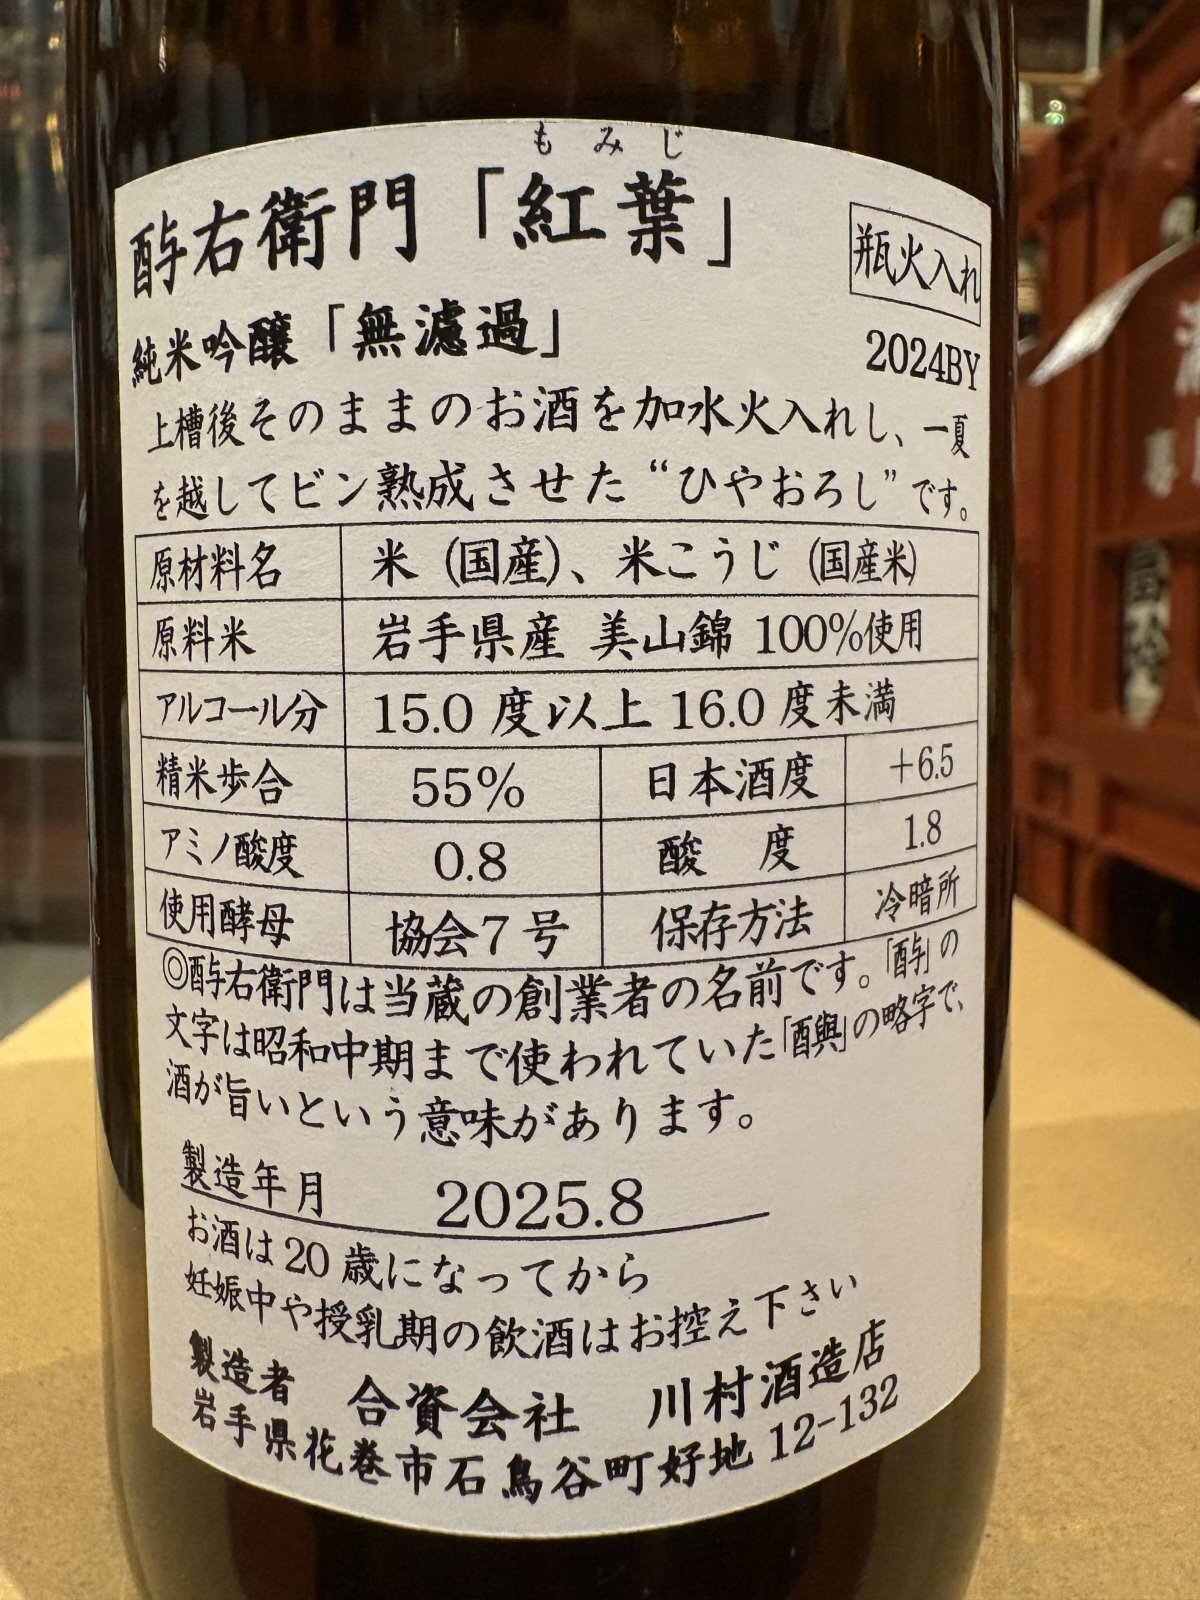 もみじ
酉与右衛門「紅葉」
瓶火入れ
純米吟醸「無濾過」
2024BY
上槽後そのままのお酒を加水火入れし、一夏
を越してビン熟成させた“ひやおろし”です。
原材料名 米（国産）、米こうじ（国産米）
原料米 岩手県産 美山錦 100%使用
アルコール分 15.0 度以上 16.0 度未満
精米歩合 55% 日本酒度 +6.5
アミノ酸度 0.8 酸 度 1.8
使用酵母 協会７号 保存方法 冷暗所
◎酉与右衛門は当蔵の創業者の名前です。「酉与」の
文字は昭和中期まで使われていた「酉與」の略字で、
酒が旨いという意味があります。
製造年月 2025.8
お酒は 20 歳になってから
妊娠中や授乳期の飲酒はお控え下さい
製造者 合資会社 川村酒造店
岩手県花巻市石鳥谷町好地 12-132